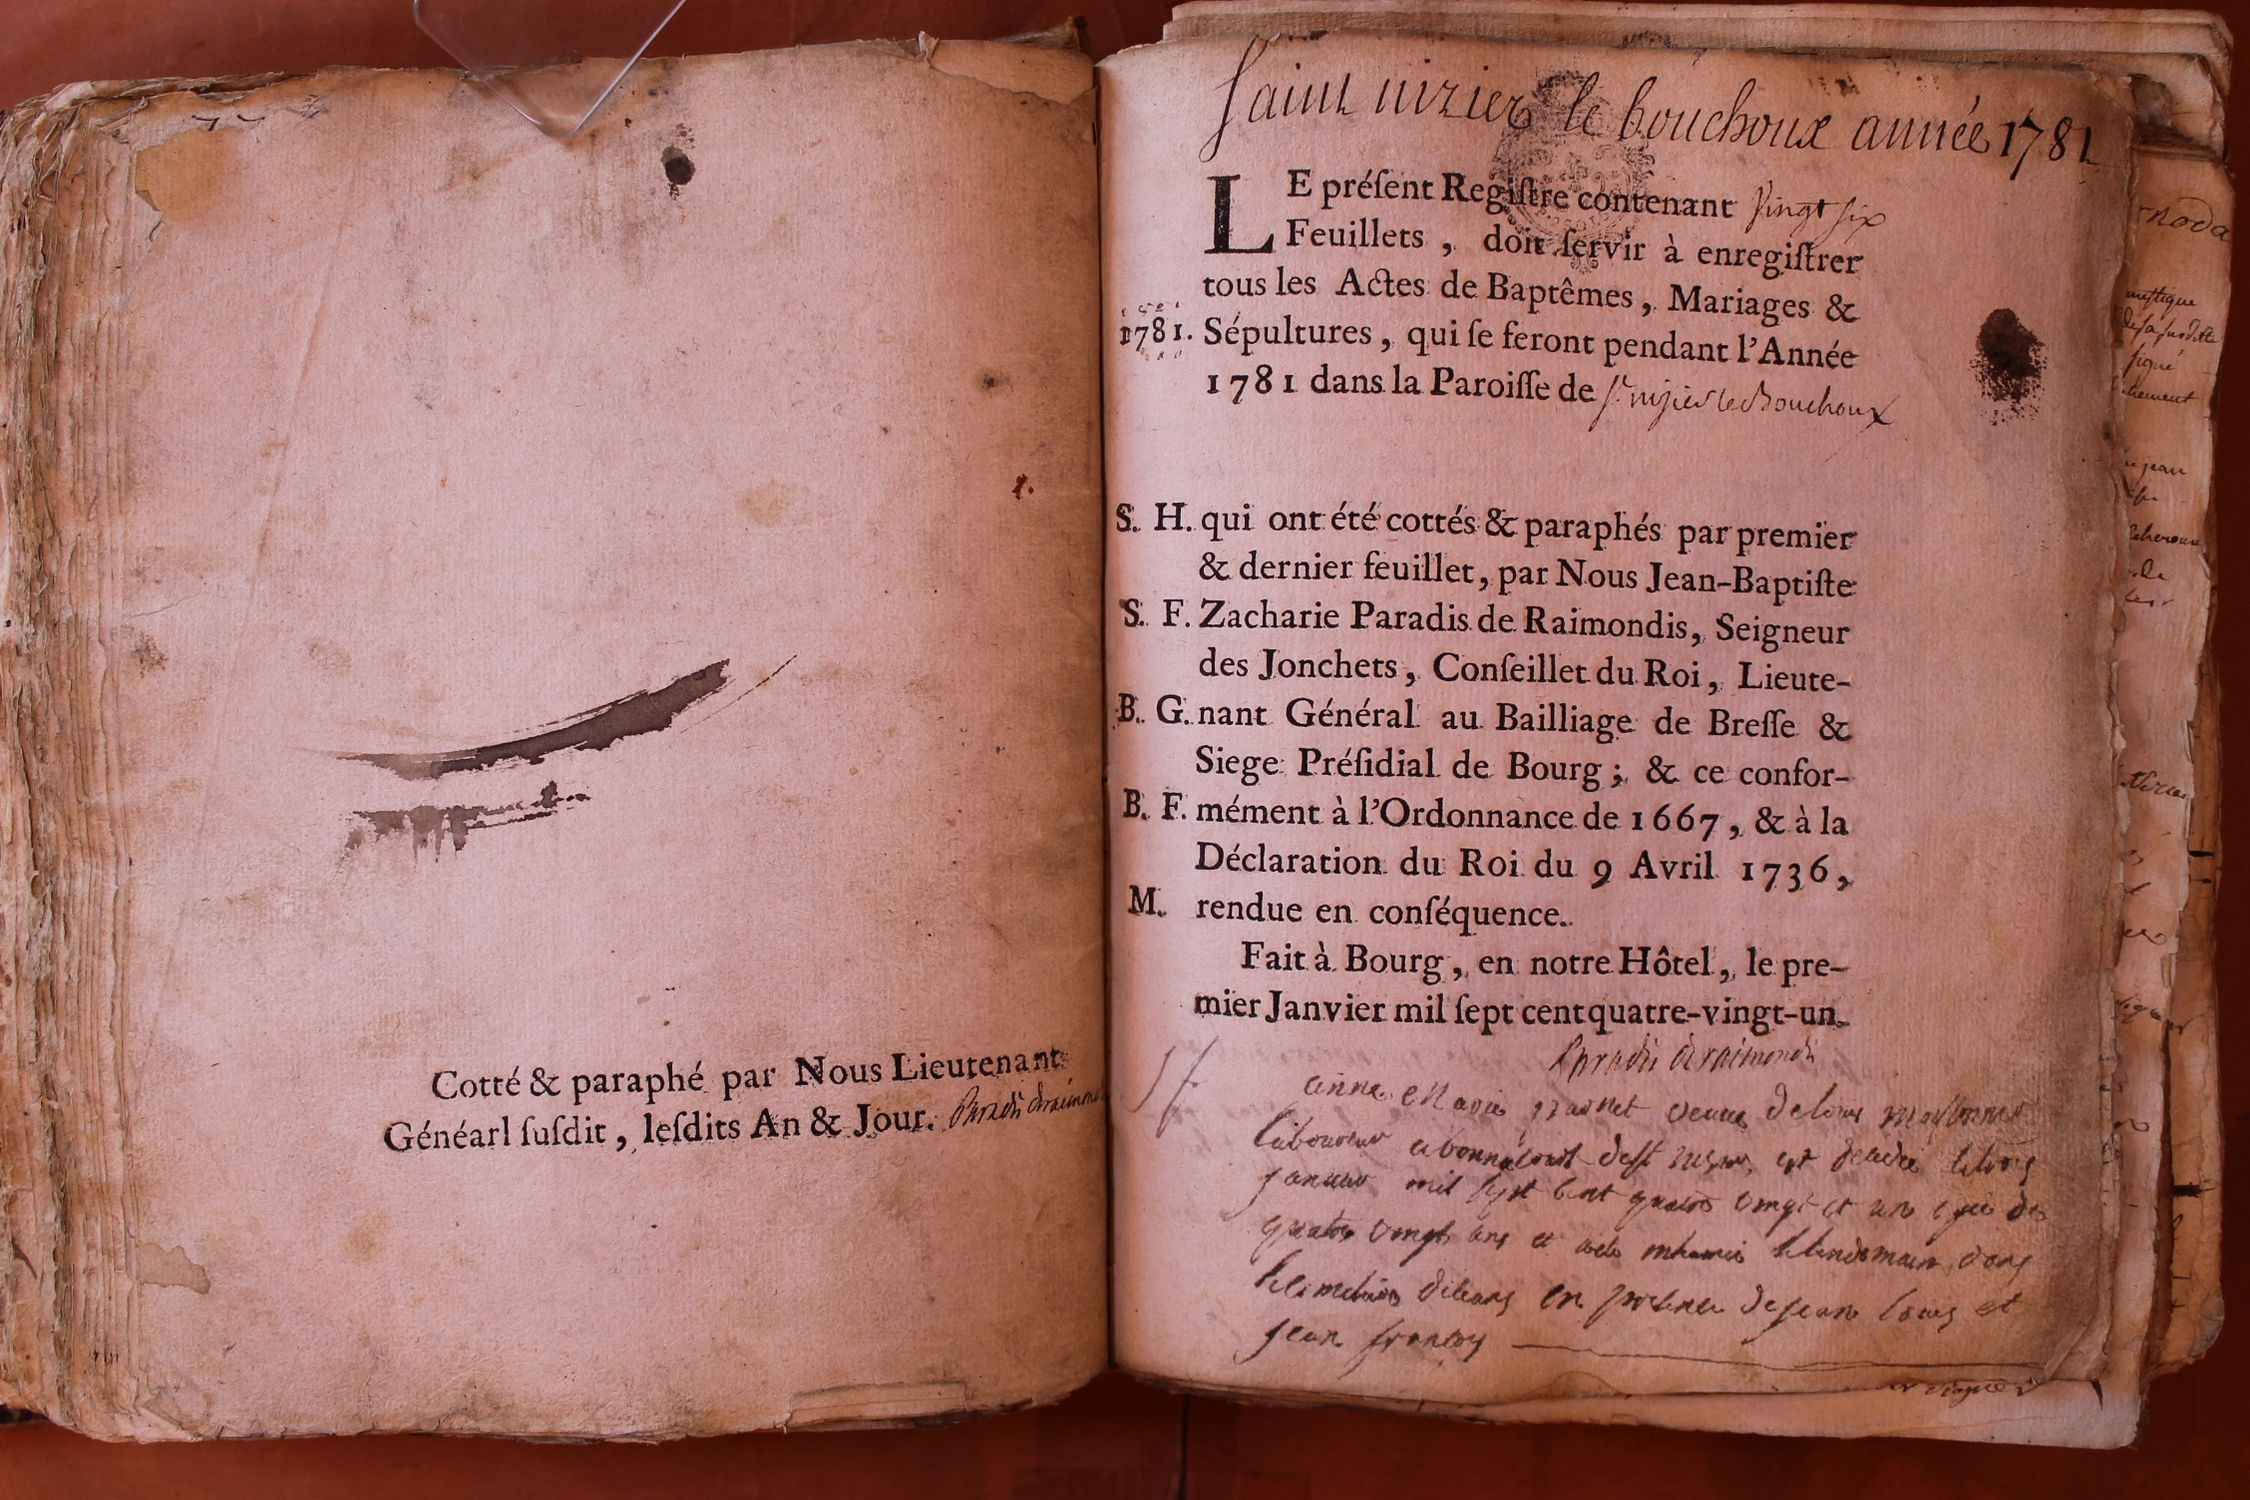 Cotté & paraphé par Nous Lieutenant
Généarl ſuſdit, leſdits An & Jour. Paradis deraimondis
Saint nizier le bouchoux année 1781
LE préſent Regiſtre contenant vingt ſix
Feuillets, doit ſervir à enregiſtrer
tous les Actes de Baptêmes, Mariages &
1781. Sépultures, qui ſe feront pendant l'Année
1781 dans la Paroiſſe de St nizier le Bouchoux
S. H. qui ont été cottés & paraphés par premier
& dernier feuillet, par Nous Jean-Baptiſte
S. F. Zacharie Paradis de Raimondis, Seigneur
des Jonchets, Conſeillet du Roi, Lieute-
B. G. nant Général au Bailliage de Breſſe &
Siege Préſidial de Bourg; & ce confor-
B. F. mément à l'Ordonnance de 1667, & à la
Déclaration du Roi du 9 Avril 1736,
M. rendue en conſéquence.
Fait à Bourg, en notre Hôtel, le pre-
mier Janvier mil ſept cent quatre-vingt-un.
Paradis deraimondis
S f. anne marie veuve de
laboureur a decedée
janvier mil sept cent quatre vingt et un agée de
quatre vingt ans et a eté inhumée le lendemain dans
le cimetiere en presence de jean louis et
jean françois